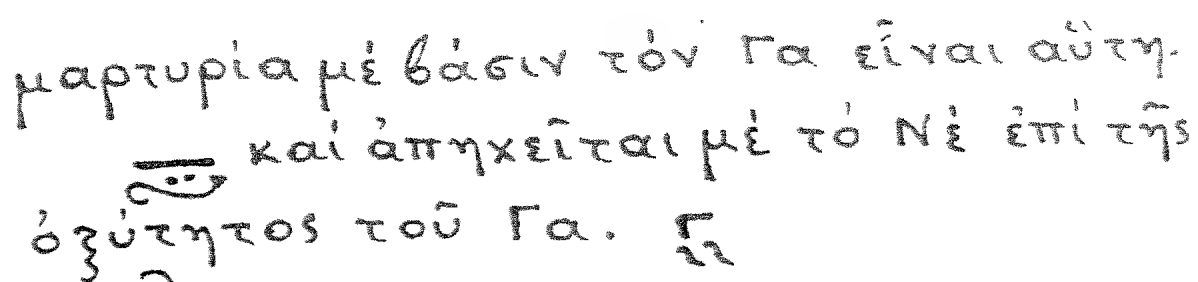 μαρτυρία μέ βάσιν τόν Γα εἶναι αὕτη.
καί ἀπηχεῖται μέ τό Νέ ἐπί τῆς
ὀξύτητος τοῦ Γα. Γ